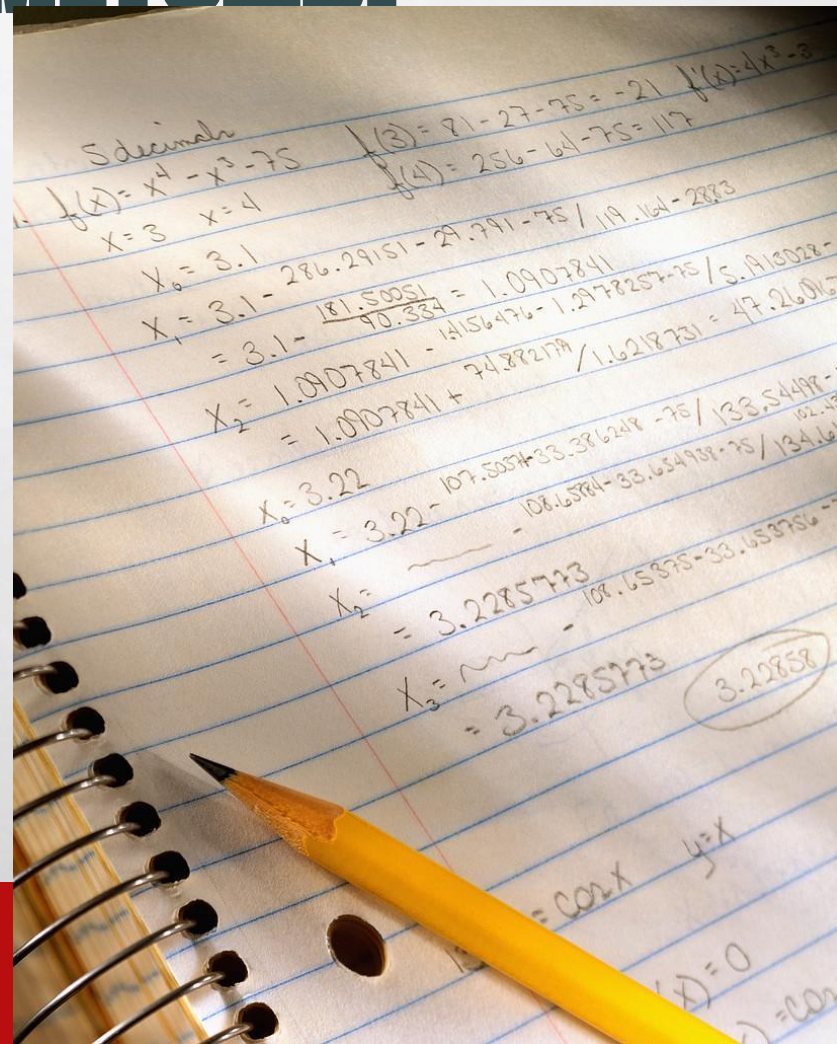 5 decimals
1. f(x) = x⁴ - x³ - 75 f(3) = 81 - 27 - 75 = -21 f'(x) = 4x³ - 3
x = 3 x = 4 f(4) = 256 - 64 - 75 = 117
X₀ = 3.1
X₁ = 3.1 - 286.29151 - 29.791 - 75 / 119.164 - 2883
= 3.1 - 181.50051 / 90.334 = 1.0907841
X₂ = 1.0907841 - 1.4156476 - 1.2978257 - 75 / 5.1913028 -
= 1.0907841 + 74.882179 / 1.6218731 = 47.2609
X₀ = 3.22
X₁ = 3.22 - 107.5037 - 33.386248 - 75 / 133.54498 -
X₂ = - 108.65884 - 33.654938 - 75 / 134.6
= 3.2285773
X₃ = - 108.65375 - 33.653756 -
= 3.2285773 3.22858
= cos x y = x
(x) = 0
) = cos